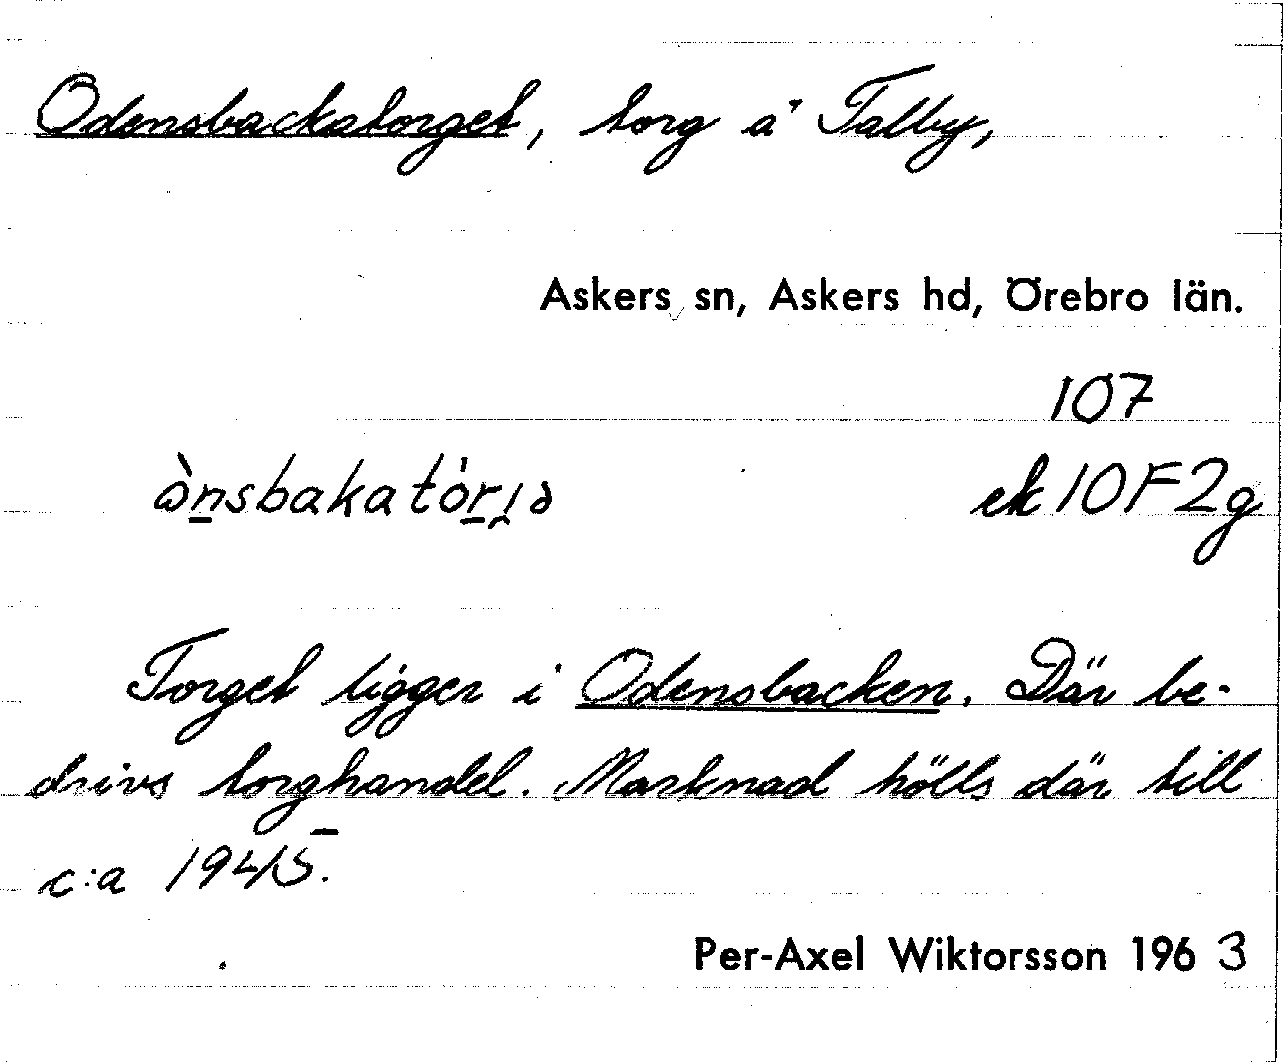 Odensbackatorget, torg å Talby,
Askers sn, Askers hd, Örebro län.
107
ek 10 F 2 g
Torget ligger i Odensbacken. Där be-
drivs torghandel. Marknad hölls där till
c:a 1945.
Per-Axel Wiktorsson 1963